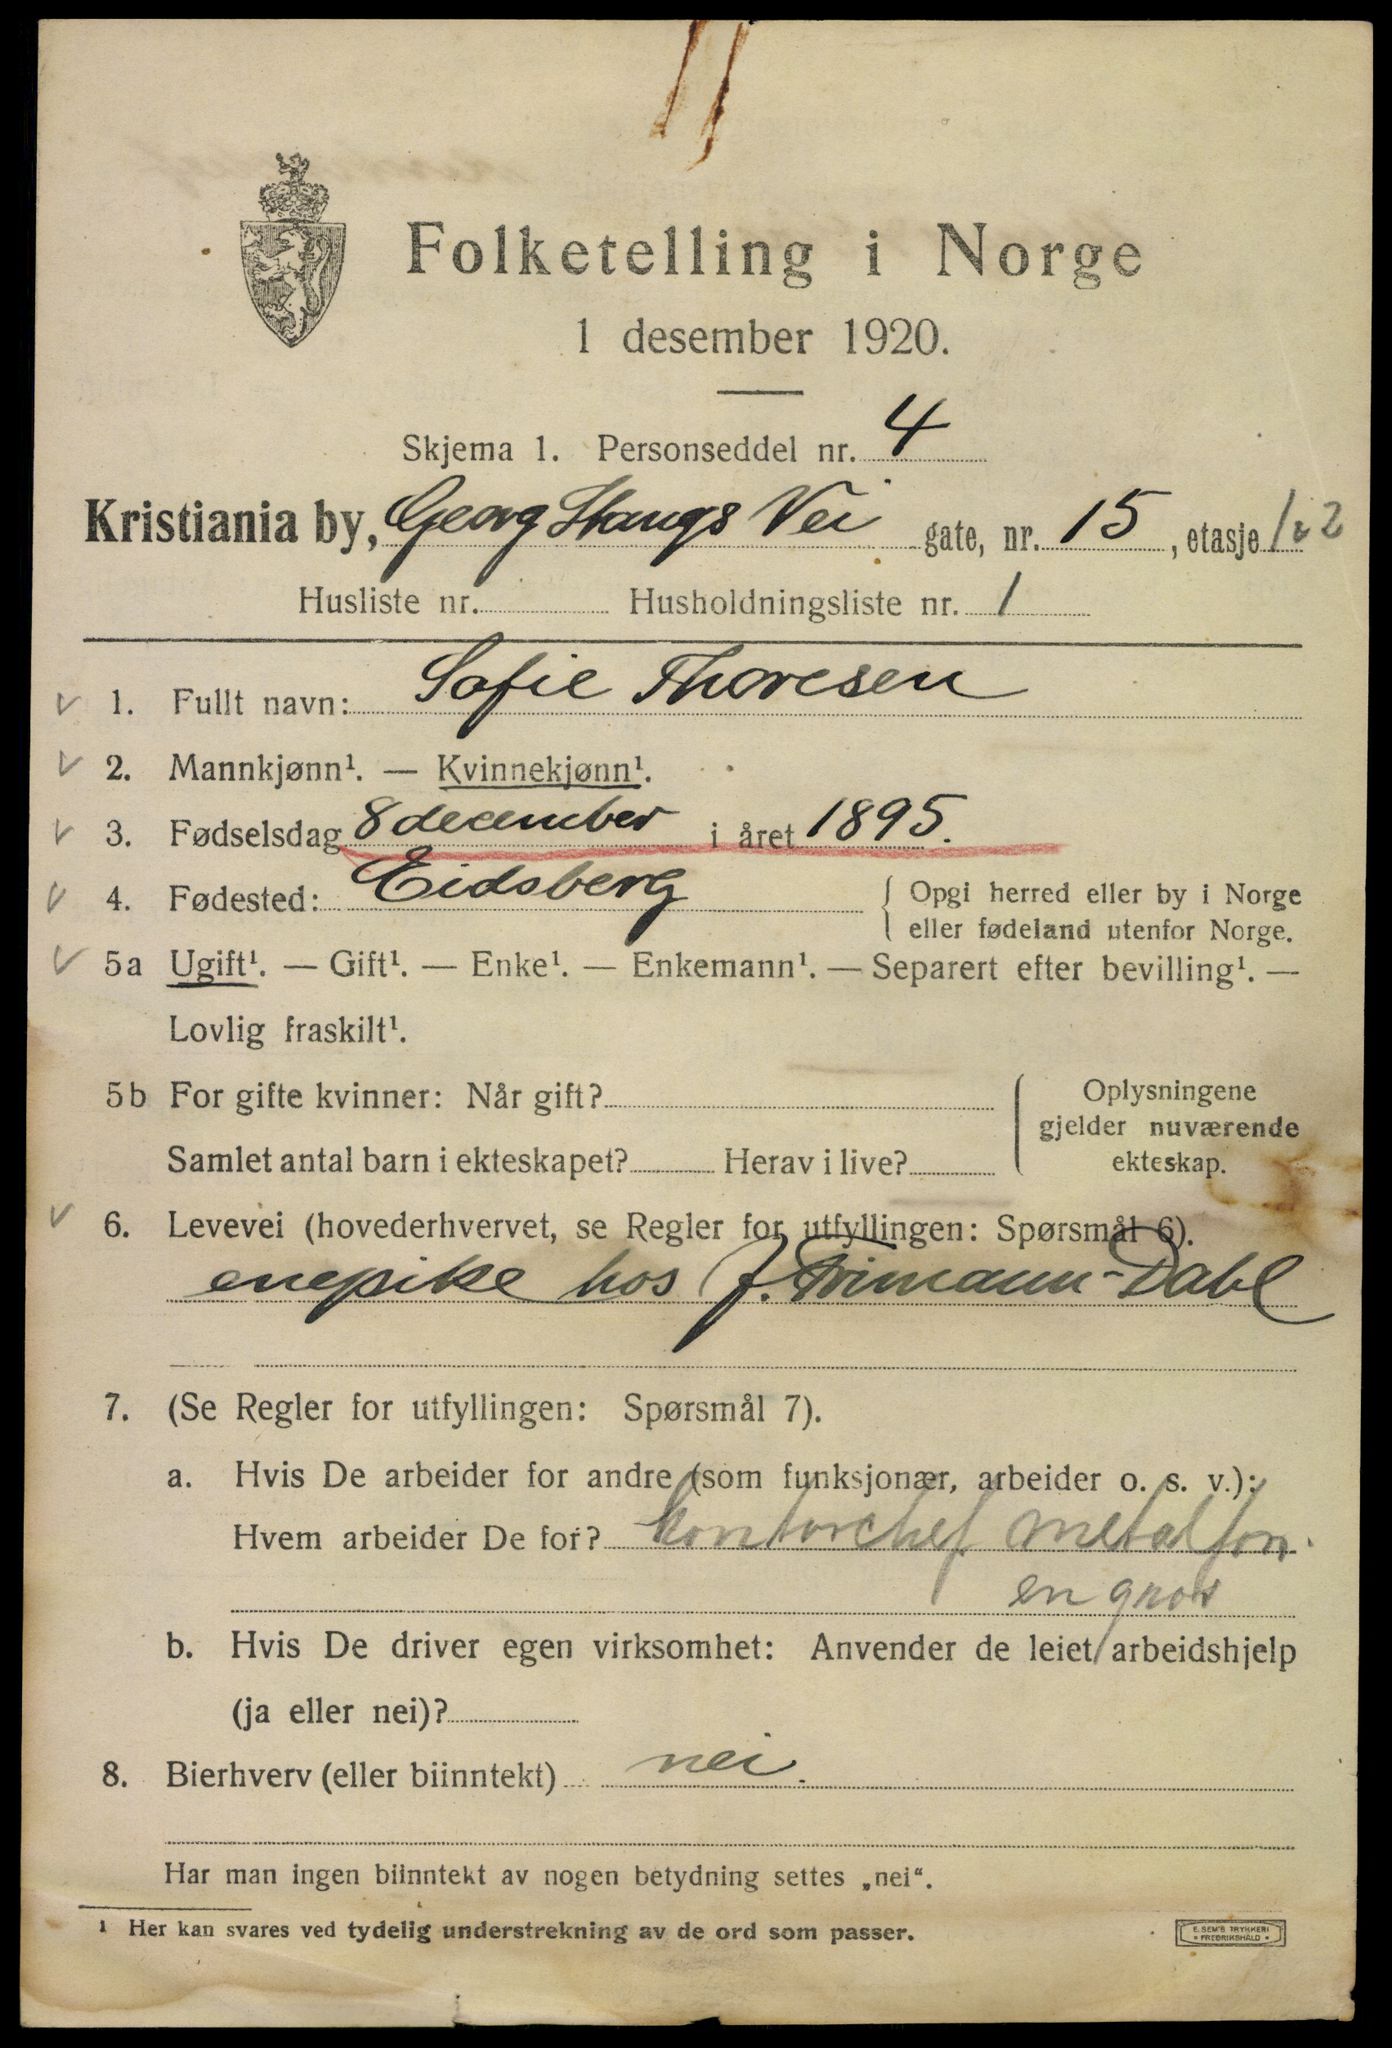 Folketelling i Norge
1 desember 1920.
Skjema 1. Personseddel nr. 4
Kristiania by, Georg Stangs Vei gate, nr. 15, etasje 1 & 2
Husliste nr. Husholdningsliste nr. 1
1. Fullt navn: Sofie Thoresen
2. Mannkjønn¹. — Kvinnekjønn¹.
3. Fødselsdag 8 december i året 1895.
4. Fødested: Eidsberg { Opgi herred eller by i Norge
eller fødeland utenfor Norge.
5a Ugift¹. — Gift¹. — Enke¹. — Enkemann¹. — Separert efter bevilling¹. —
Lovlig fraskilt¹.
5b For gifte kvinner: Når gift? { Oplysningene
gjelder nuværende
Samlet antal barn i ekteskapet? Herav i live? ekteskap.
6. Levevei (hovederhvervet, se Regler for utfyllingen: Spørsmål 6).
enepike hos J. Frimann-Dahl
7. (Se Regler for utfyllingen: Spørsmål 7).
a. Hvis De arbeider for andre (som funksjonær, arbeider o. s. v.):
Hvem arbeider De for? kontorchef metalfon.
en gros
b. Hvis De driver egen virksomhet: Anvender de leiet arbeidshjelp
(ja eller nei)?
8. Bierhverv (eller biinntekt) nei.
Har man ingen biinntekt av nogen betydning settes „nei“.
¹ Her kan svares ved tydelig understrekning av de ord som passer.
E. SEM'S TRYKKERI
FREDRIKSHALD